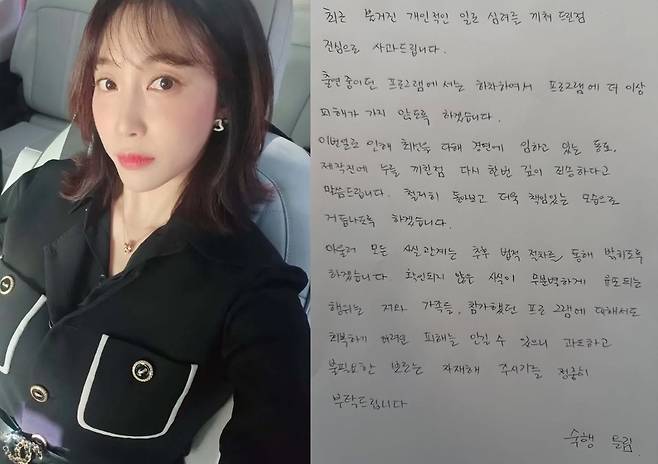 최근 불거진 개인적인 일로 심려를 끼쳐 드린점
진심으로 사과드립니다.
출연중이던 프로그램에서는 하차하여서 프로그램에 더 이상
피해가 가지 않도록 하겠습니다.
이번일로 인해 최선을 다해 경연에 임하고 있는 동료,
제작진에 누를 끼친점 다시 한번 깊이 죄송하다고
말씀드립니다. 철저히 돌아보고 더욱 책임있는 모습으로
거듭나도록 하겠습니다.
아울러 모든 사실관계는 추후 법적 절차를 통해 밝히도록
하겠습니다. 확인되지 않은 사실이 무분별하게 유포되는
행위는 저와 가족들, 참가했던 프로그램에 대해서도
회복하기 어려운 피해를 안길 수 있으니 과도하고
불필요한 보도는 자제해 주시기를 정중히
부탁드립니다
숙행 드림.